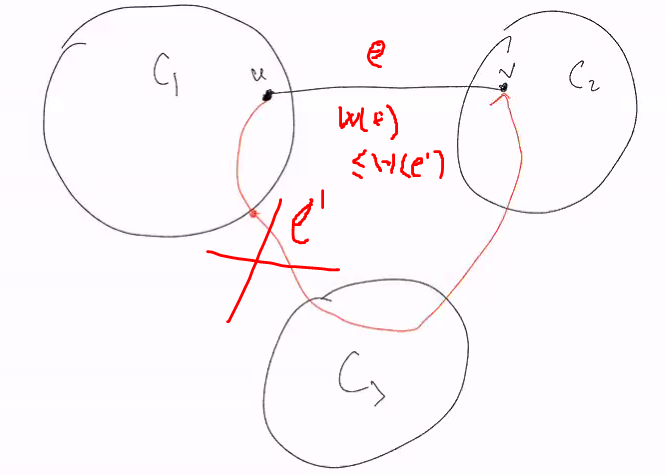 e
C₁
u
v
C₂
w(e)
≤ w(e')
e'
C₃